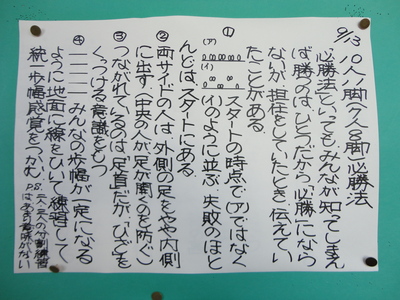 9/13 10人11脚(7人8脚)必勝法
必勝法といってもみんなが知ってしまえ
ば勝つのはひとつだから「必勝」になら
ないが、担任をしていたとき、伝えてい
たことがある。
① (ア) (イ) スタートの時点で(ア)ではなく
(イ)のように並ぶ。失敗のほと
んどはスタートにある。
② 両サイドの人は、外側の足をやや内側
に出す。(中央の人が足が開くのを防ぐ)
③ つながれているのは「足首」だが、「ひざ」を
くっつける意識をもつ
④ みんなの歩幅が一定になる
ように地面に線をひいて練習して
統一歩幅感覚をつかむ
P.S. 二人〜三人での分割練習
はあまり意味がない